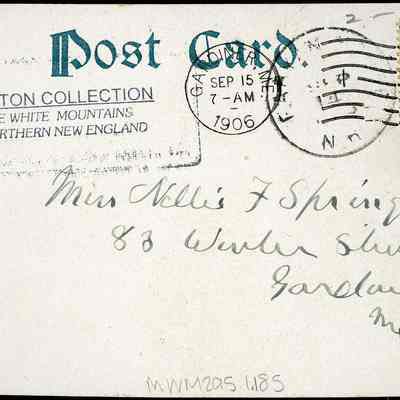 2-
Post Card
TON COLLECTION
E WHITE MOUNTAINS
RTHERN NEW ENGLAND
GARDINER, ME.
SEP 15
7-AM
1906
Miss Nellie F Spring
83 Winter
Me
MWM295.1185